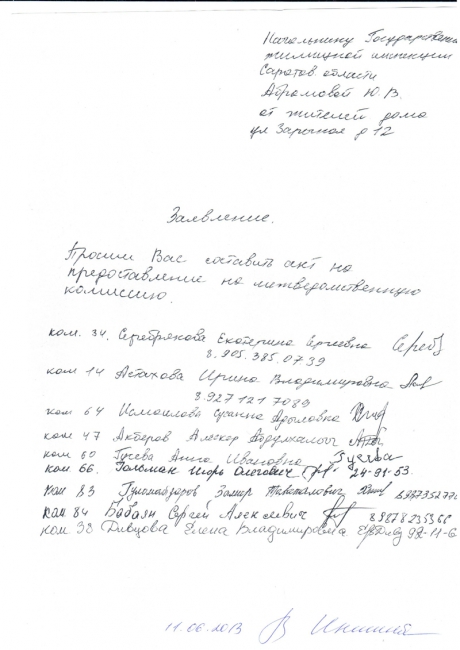 Начальнику Государственн
жилищной инспекции
Саратов. области
Абрамовой Ю. В.
от жителей дома
ул Заречная д 12
Заявление.
Просим Вас составить акт на
предоставление на межведомственную
комиссию.
ком. 34. Серебрякова Екатерина Сергеевна Сереб
8.905.385.07.39
ком 14 Астахова Ирина Владимировна
8 927 121 7089
ком 64 Исмаилова Сузанна Адыловна
ком 47 Акберов Алескер
ком 60 Гусева Анна Ивановна Гусева
ком 66. Гольман Игорь Олегович 24-91-53.
ком 83 Замир
ком 84 Бабаян Сергей Алексеевич 89878235366
ком 98 Дивцова Елена Владимировна 98-11-6
11.06.2013